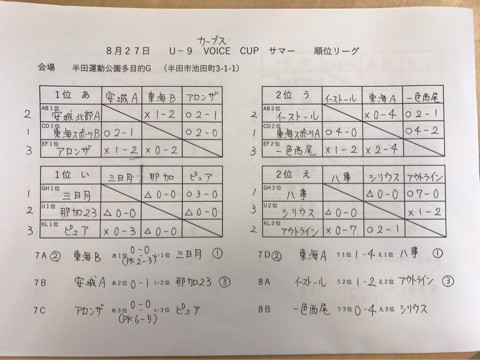 カーブス
8月27日 U-9 VOICE CUP サマー 順位リーグ
会場 半田運動公園多目的G (半田市池田町3-1-1)
1位 あ 安城A 東海B アロンザ
2 AB1位 安城北部A ×1-2 ○2-1
1 CD1位 東海スポーツB ○2-1 ○2-0
3 EF1位 アロンザ ×1-2 ×0-2
2位 う イーストール 東海A 一色西尾
2 AB2位 イーストール ×0-4 ○2-1
1 CD2位 東海スポーツA ○4-0 ○4-2
3 EF2位 一色西尾 ×1-2 ×2-4
1位 い 三日月 那加 ピュア
1 GH1位 三日月 △0-0 ○3-0
2 IJ1位 那加23 △0-0 △0-0
3 KL1位 ピュア ×0-3 △0-0
2位 え 八事 シリウス アウトライン
1 GH2位 八事 △0-0 ○7-0
3 IJ2位 シリウス △0-0 ×1-2
2 KL2位 アウトライン ×0-7 ○2-1
7A ② 東海B あ1位 0-0 (PK2-3) い1位 三日月 ①
7B 安城A あ2位 0-1 い2位 那加23 ③
7C アロンザ あ3位 0-0 (PK6-5) い3位 ピュア
7D ② 東海A う1位 1-4 え1位 八事 ①
8A イーストール う2位 1-2 え2位 アウトライン ③
8B 一色西尾 う3位 0-4 え3位 シリウス